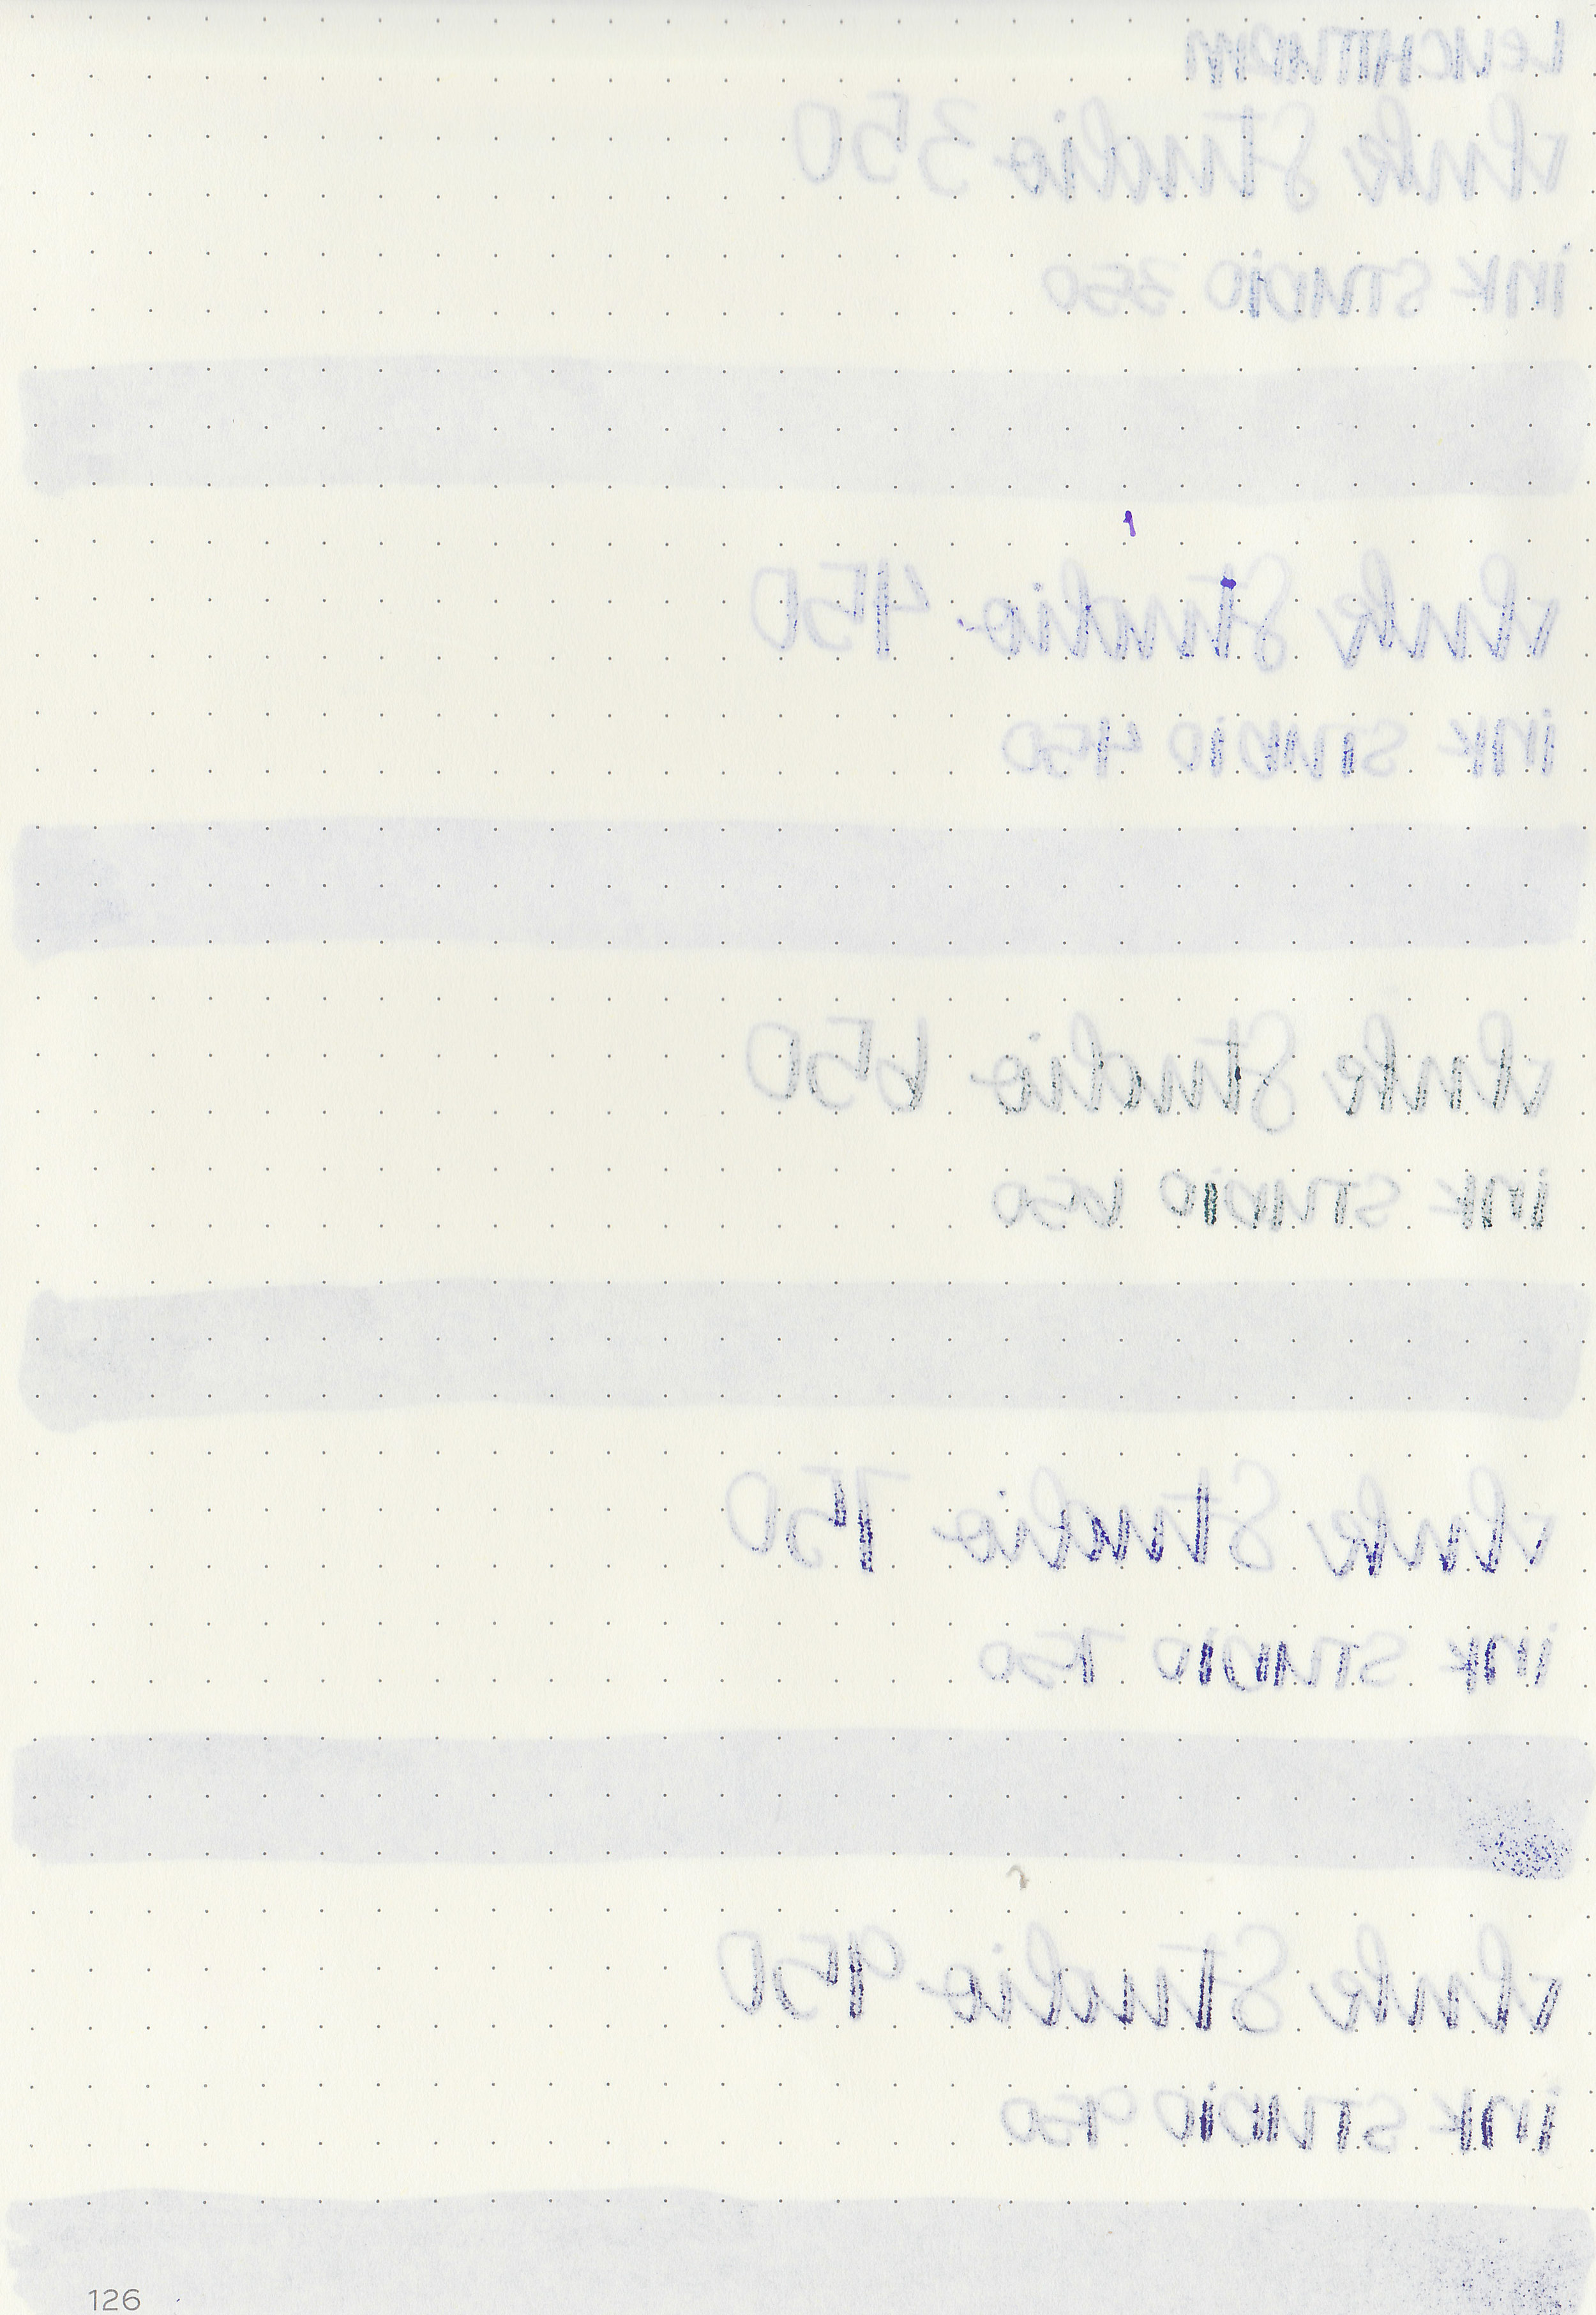 LEUCHTTURM
Ink Studio 350
INK STUDIO 350
Ink Studio 450
INK STUDIO 450
Ink Studio 650
INK STUDIO 650
Ink Studio 750
INK STUDIO 750
Ink Studio 950
INK STUDIO 950
126